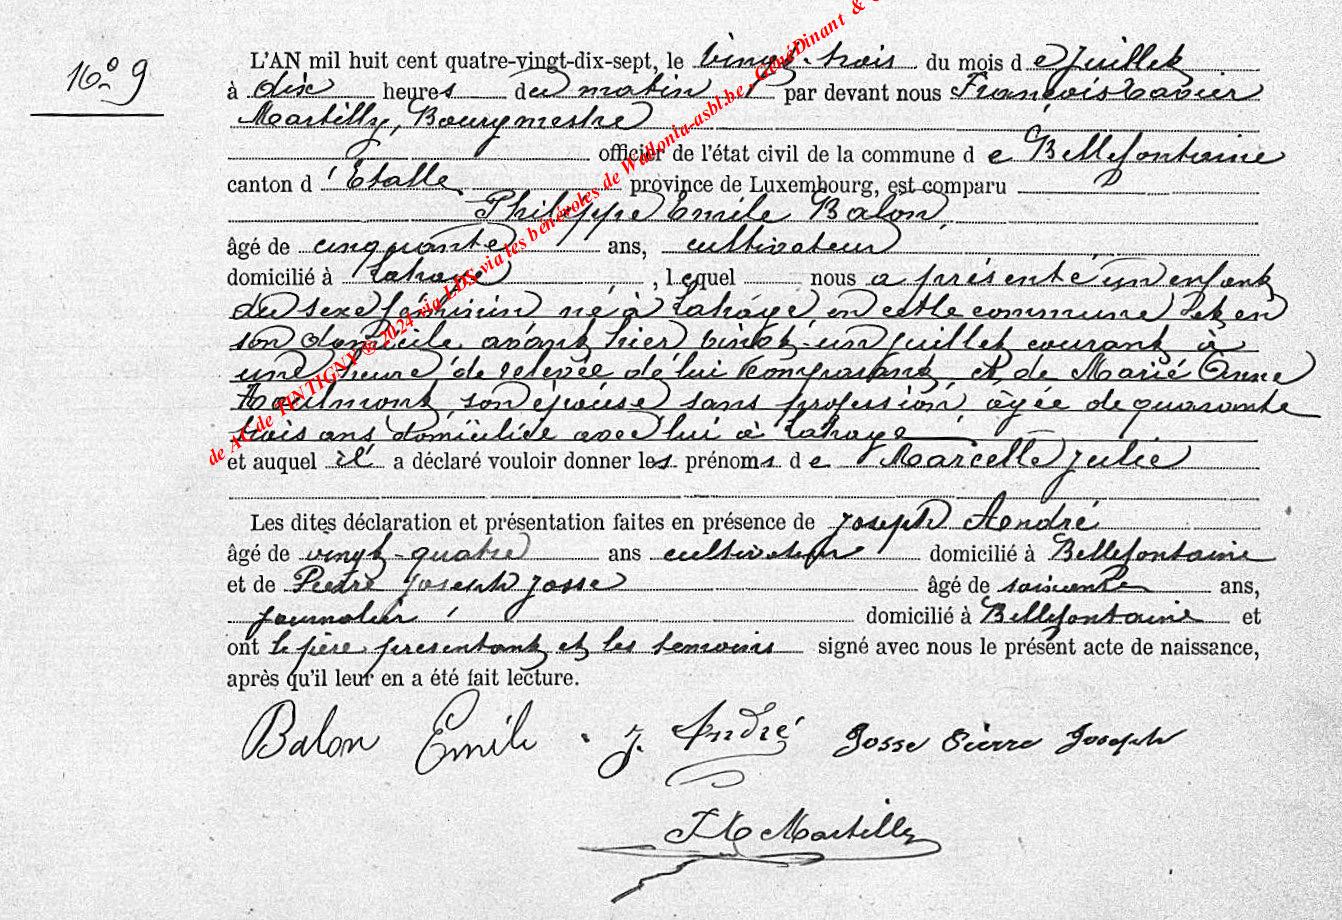 No 9
L'AN mil huit cent quatre-vingt-dix-sept, le vingt-trois du mois de Juillet
à dix heures du matin par devant nous François Xavier
Martilly, Bourgmestre
officier de l'état civil de la commune de Bellefontaine
canton d'Etalle province de Luxembourg, est comparu
Philippe Emile Balon,
âgé de cinquante ans, cultivateur
domicilié à Lahage, lequel nous a présenté un enfant
du sexe féminin né à Lahage en cette commune et en
son domicile avant hier vingt-un juillet courant à
une heure de relevée de lui comparant et de Marie Anne
son épouse sans profession, âgée de quarante
trois ans domiciliée avec lui à Lahage
et auquel il a déclaré vouloir donner les prénoms de Marcelle Julie
Les dites déclaration et présentation faites en présence de Joseph André
âgé de vingt-quatre ans cultivateur domicilié à Bellefontaine
et de Pierre Joseph Josse âgé de soixante ans,
journalier domicilié à Bellefontaine et
ont le père présentant et les témoins signé avec nous le présent acte de naissance,
après qu'il leur en a été fait lecture.
Balon Emile. J. André Josse Pierre Joseph
FX Martilly
de AC de TINTIGNY ® 2024 via LDS via les bénévoles de Wallonia-asbl.be, GénéDinant &